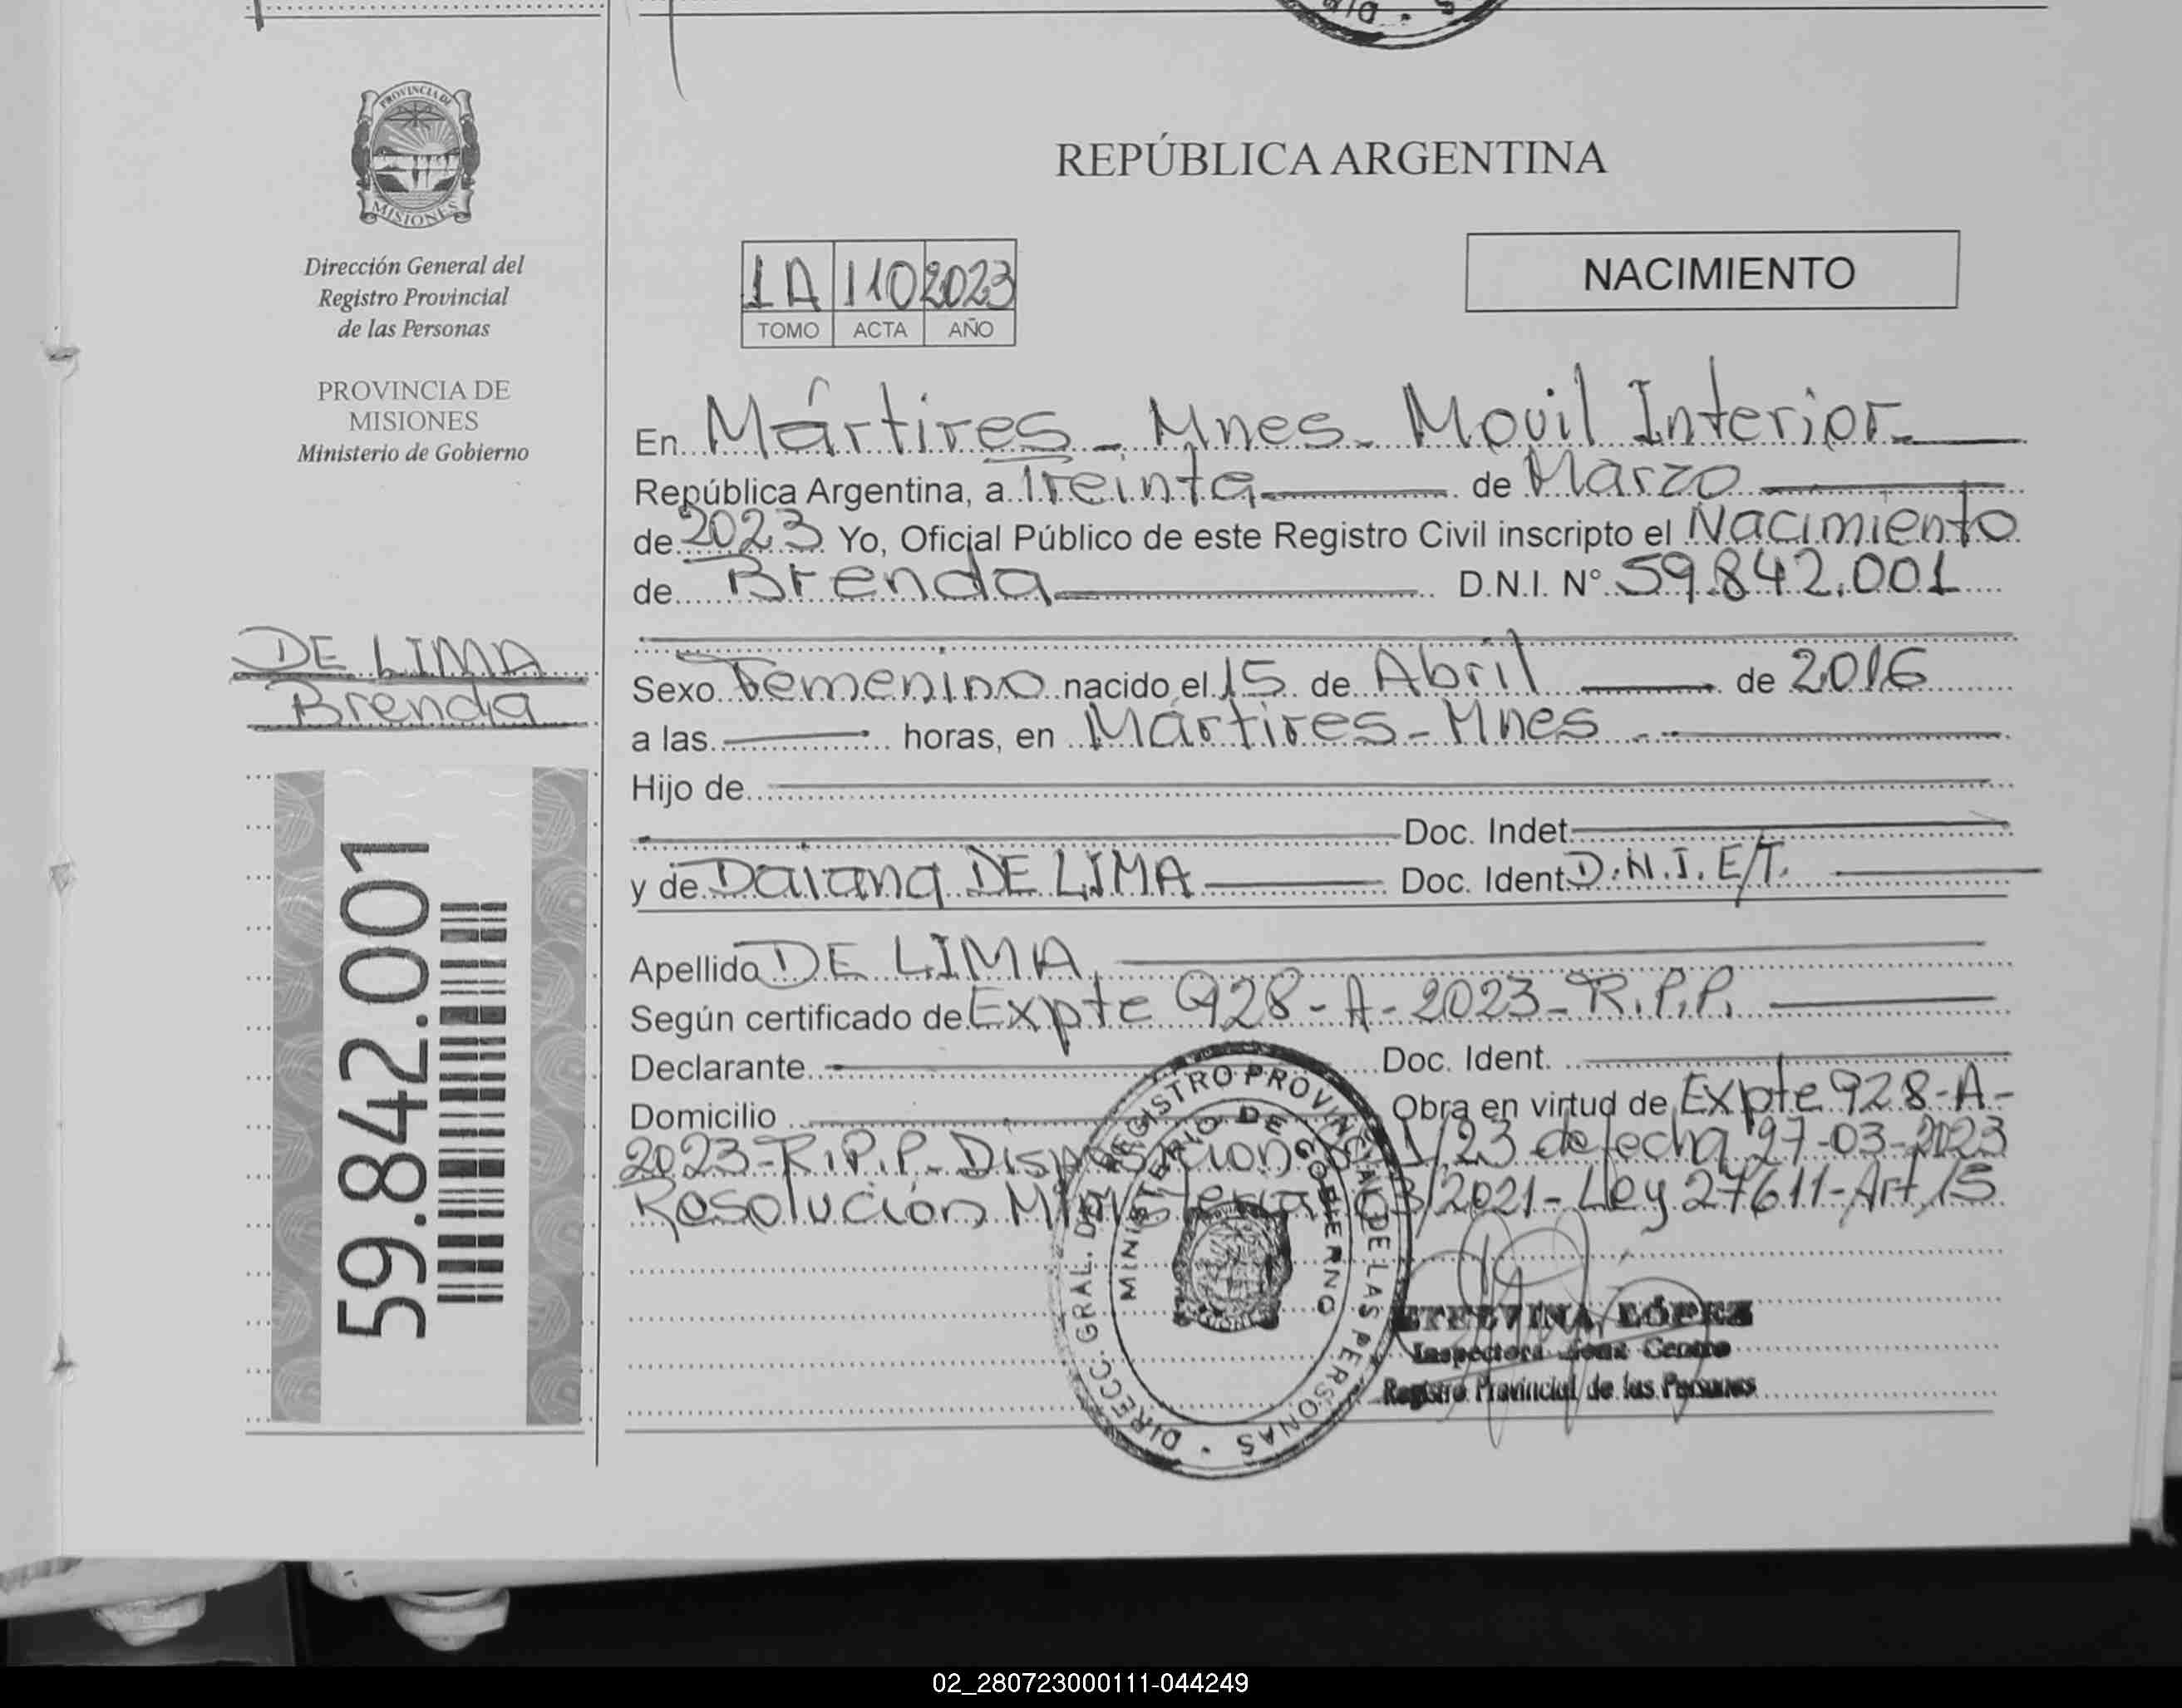 PROVINCIA DE
MISIONES
Dirección General del
Registro Provincial
de las Personas
PROVINCIA DE
MISIONES
Ministerio de Gobierno
DE LIMA
Brenda
59.842.001
REPÚBLICA ARGENTINA
1A 110 2023
TOMO ACTA AÑO
NACIMIENTO
En Mártires - Mnes - Movil Interior -
República Argentina, a Treinta de Marzo
de 2023 Yo, Oficial Público de este Registro Civil inscripto el Nacimiento
de Brenda D.N.I. N° 59.842.001
Sexo Femenino nacido el 15 de Abril de 2016
a las horas, en Mártires - Mnes -
Hijo de
Doc. Indet.
y de Daiana DE LIMA Doc. Ident. D.N.I. E/T.
Apellido DE LIMA
Según certificado de Expte 928-A-2023-R.P.P.
Declarante Doc. Ident.
Domicilio Obra en virtud de Expte 928-A-
2023-R.P.P. Disposición /23 de fecha 27-03-2023
Resolución Ministerial /2021-Ley 27611-Art 15
DIRECC. GRAL. DEL REGISTRO PROVINCIAL DE LAS PERSONAS
MINISTERIO DE GOBIERNO
ETELVINA LÓPEZ
Inspectora Zona Centro
Registro Provincial de las Personas
02_280723000111-044249